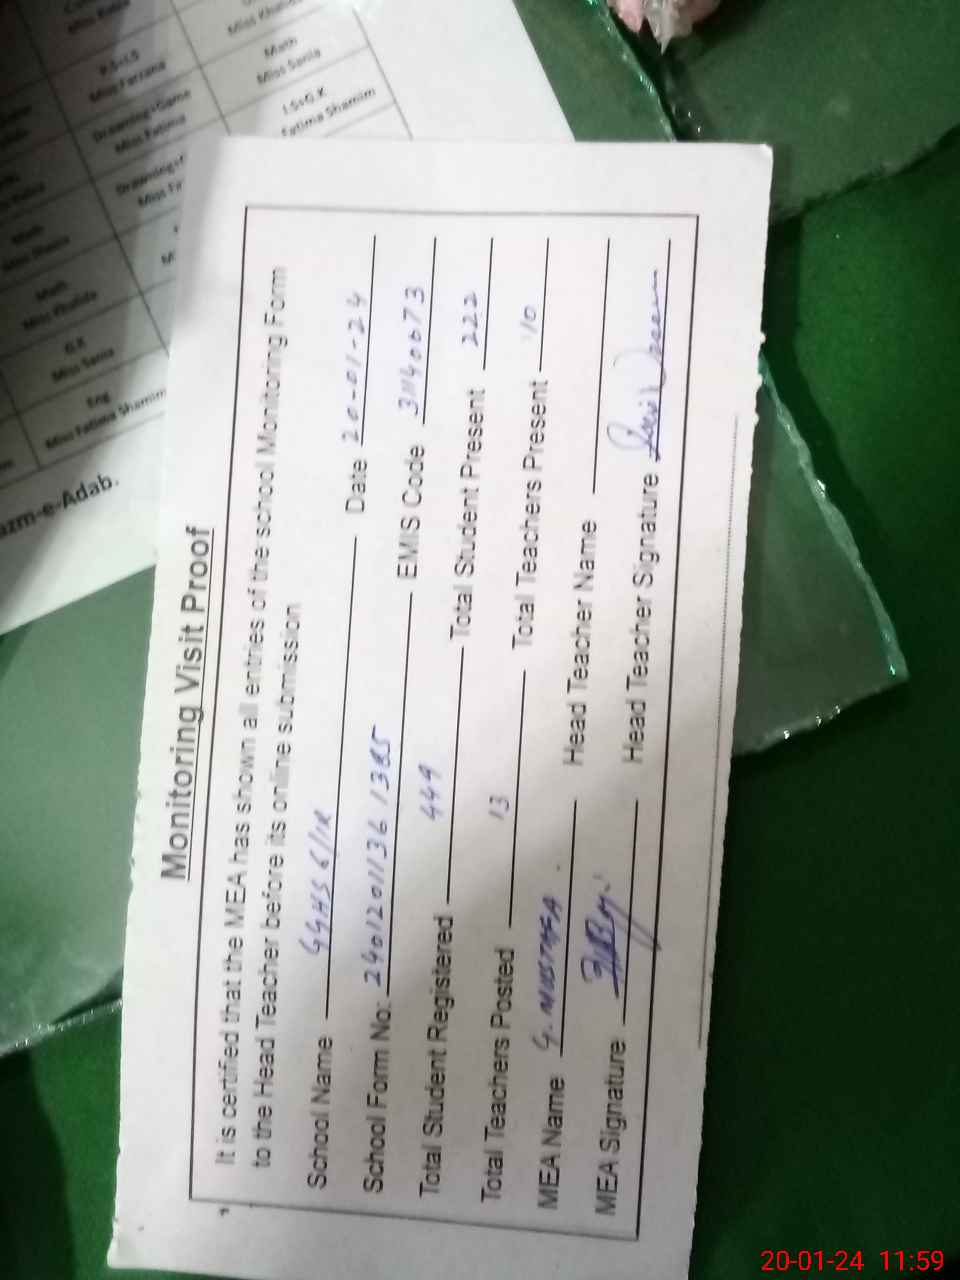 Monitoring Visit Proof
It is certified that the MEA has shown all entries of the school Monitoring Form
to the Head Teacher before its online submission
School Name GGHS 6/1R Date 20-01-24
School Form No: EMIS Code
Total Student Registered 449 Total Student Present 222
Total Teachers Posted 13 Total Teachers Present 10
MEA Name G. MUSTAFA Head Teacher Name
MEA Signature Head Teacher Signature
P.S+I.S
Miss Farzana
Math
Miss Sania
Drawing+Game
Miss Fatima
I.S+G.K
Fatima Shamim
Math
Miss Khalida
G.K
Miss Sania
Eng
Miss Fatima Shamim
azm-e-Adab.
20-01-24 11:59